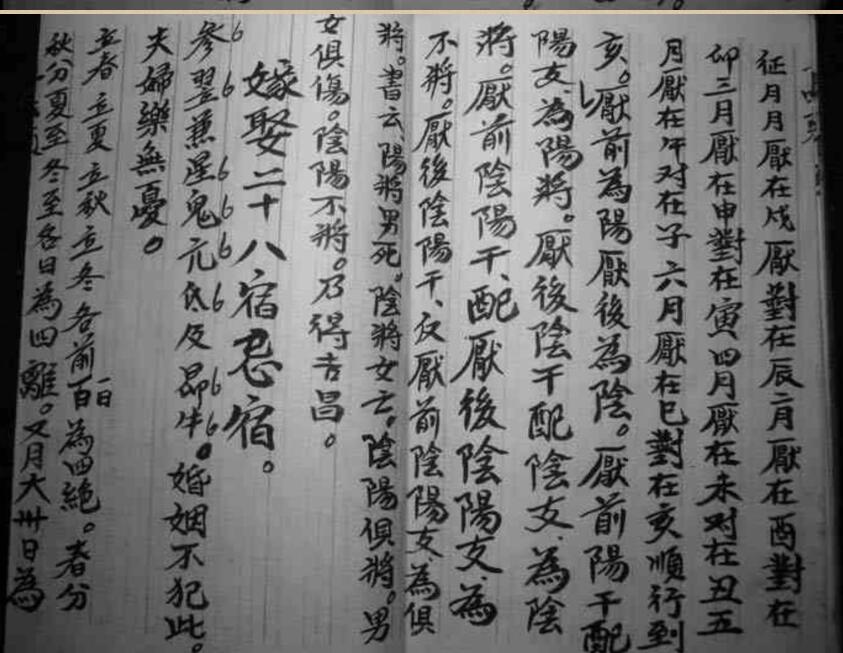 征月月厭在戍厭對在辰二月厭在酉對在
卯三月厭在申對在寅四月厭在未对在丑五
月厭在午对在子六月厭在巳對在亥順行到
亥。厭前為陽厭後為陰。厭前陽干配
陽支、為陽將。厭後陰干配陰支、為陰
將。厭前陰陽干、配厭後陰陽支、為
不將。厭後陰陽干、反厭前陰陽支、為俱
將。書云、陽將男死。陰將女亡。陰陽俱將。男
女俱傷。陰陽不將。乃得吉昌。
嫁娶二十八宿忌宿。
参翌兼星鬼亢低反昴牛。婚姻不犯此。
夫婦樂無憂。
立春立夏立秋立冬各前一日為四絶。春分
秋分夏至冬至各日為四離。又月大卅日為